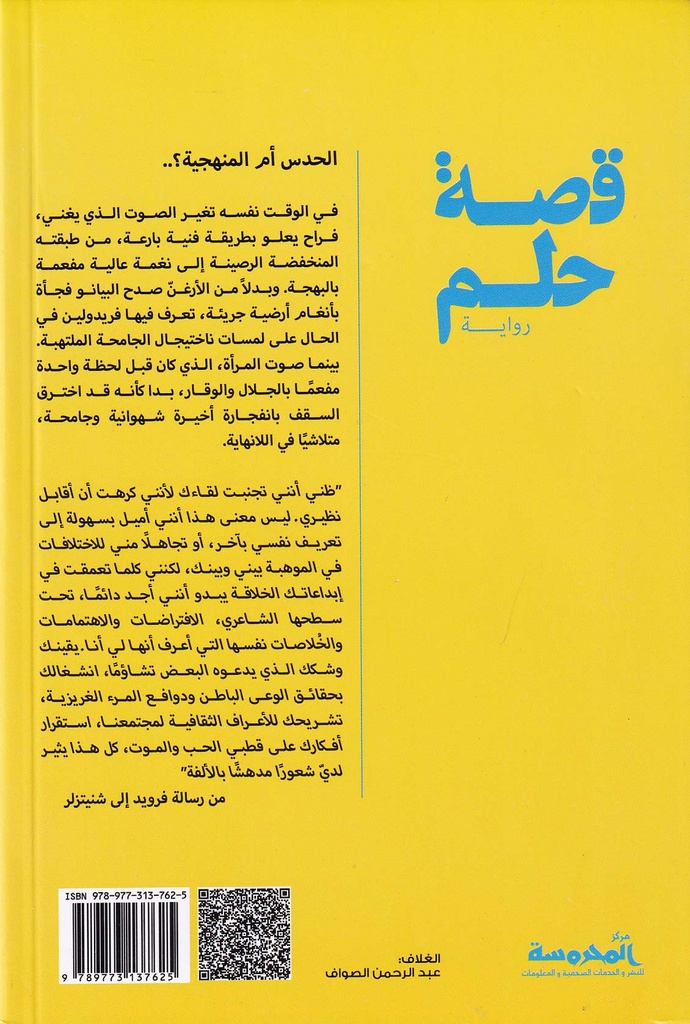 قصة
حلم
رواية
الحدس أم المنهجية؟..
في الوقت نفسه تغير الصوت الذي يغني،
فراح يعلو بطريقة فنية بارعة، من طبقته
المنخفضة الرصينة إلى نغمة عالية مفعمة
بالبهجة. وبدلاً من الأرغنّ صدح البيانو فجأة
بأنغام أرضية جريئة، تعرف فيها فريدولين في
الحال على لمسات ناختيجال الجامحة الملتهبة.
بينما صوت المرأة، الذي كان قبل لحظة واحدة
مفعمًا بالجلال والوقار، بدا كأنه قد اخترق
السقف بانفجارة أخيرة شهوانية وجامحة،
متلاشيًا في اللانهاية.
"ظني أنني تجنبت لقاءك لأنني كرهت أن أقابل
نظيري. ليس معنى هذا أنني أميل بسهولة إلى
تعريف نفسي بآخر، أو تجاهلًا مني للاختلافات
في الموهبة بيني وبينك، لكنني كلما تعمقت في
إبداعاتك الخلاقة يبدو أنني أجد دائمًا، تحت
سطحها الشاعري، الافتراضات والاهتمامات
والخُلاصات نفسها التي أعرف أنها لي أنا. يقينك
وشكك الذي يدعوه البعض تشاؤمًا، انشغالك
بحقائق الوعي الباطن ودوافع المرء الغريزية،
تشريحك للأعراف الثقافية لمجتمعنا، استقرار
أفكارك على قطبي الحب والموت، كل هذا يثير
لديّ شعورًا مدهشًا بالألفة"
من رسالة فرويد إلى شنيتزلر
مركز
المحروسة
للنشر و الخدمات الصحفية و المعلومات
الغلاف:
عبد الرحمن الصواف
ISBN 978-977-313-762-5
9 789773 137625